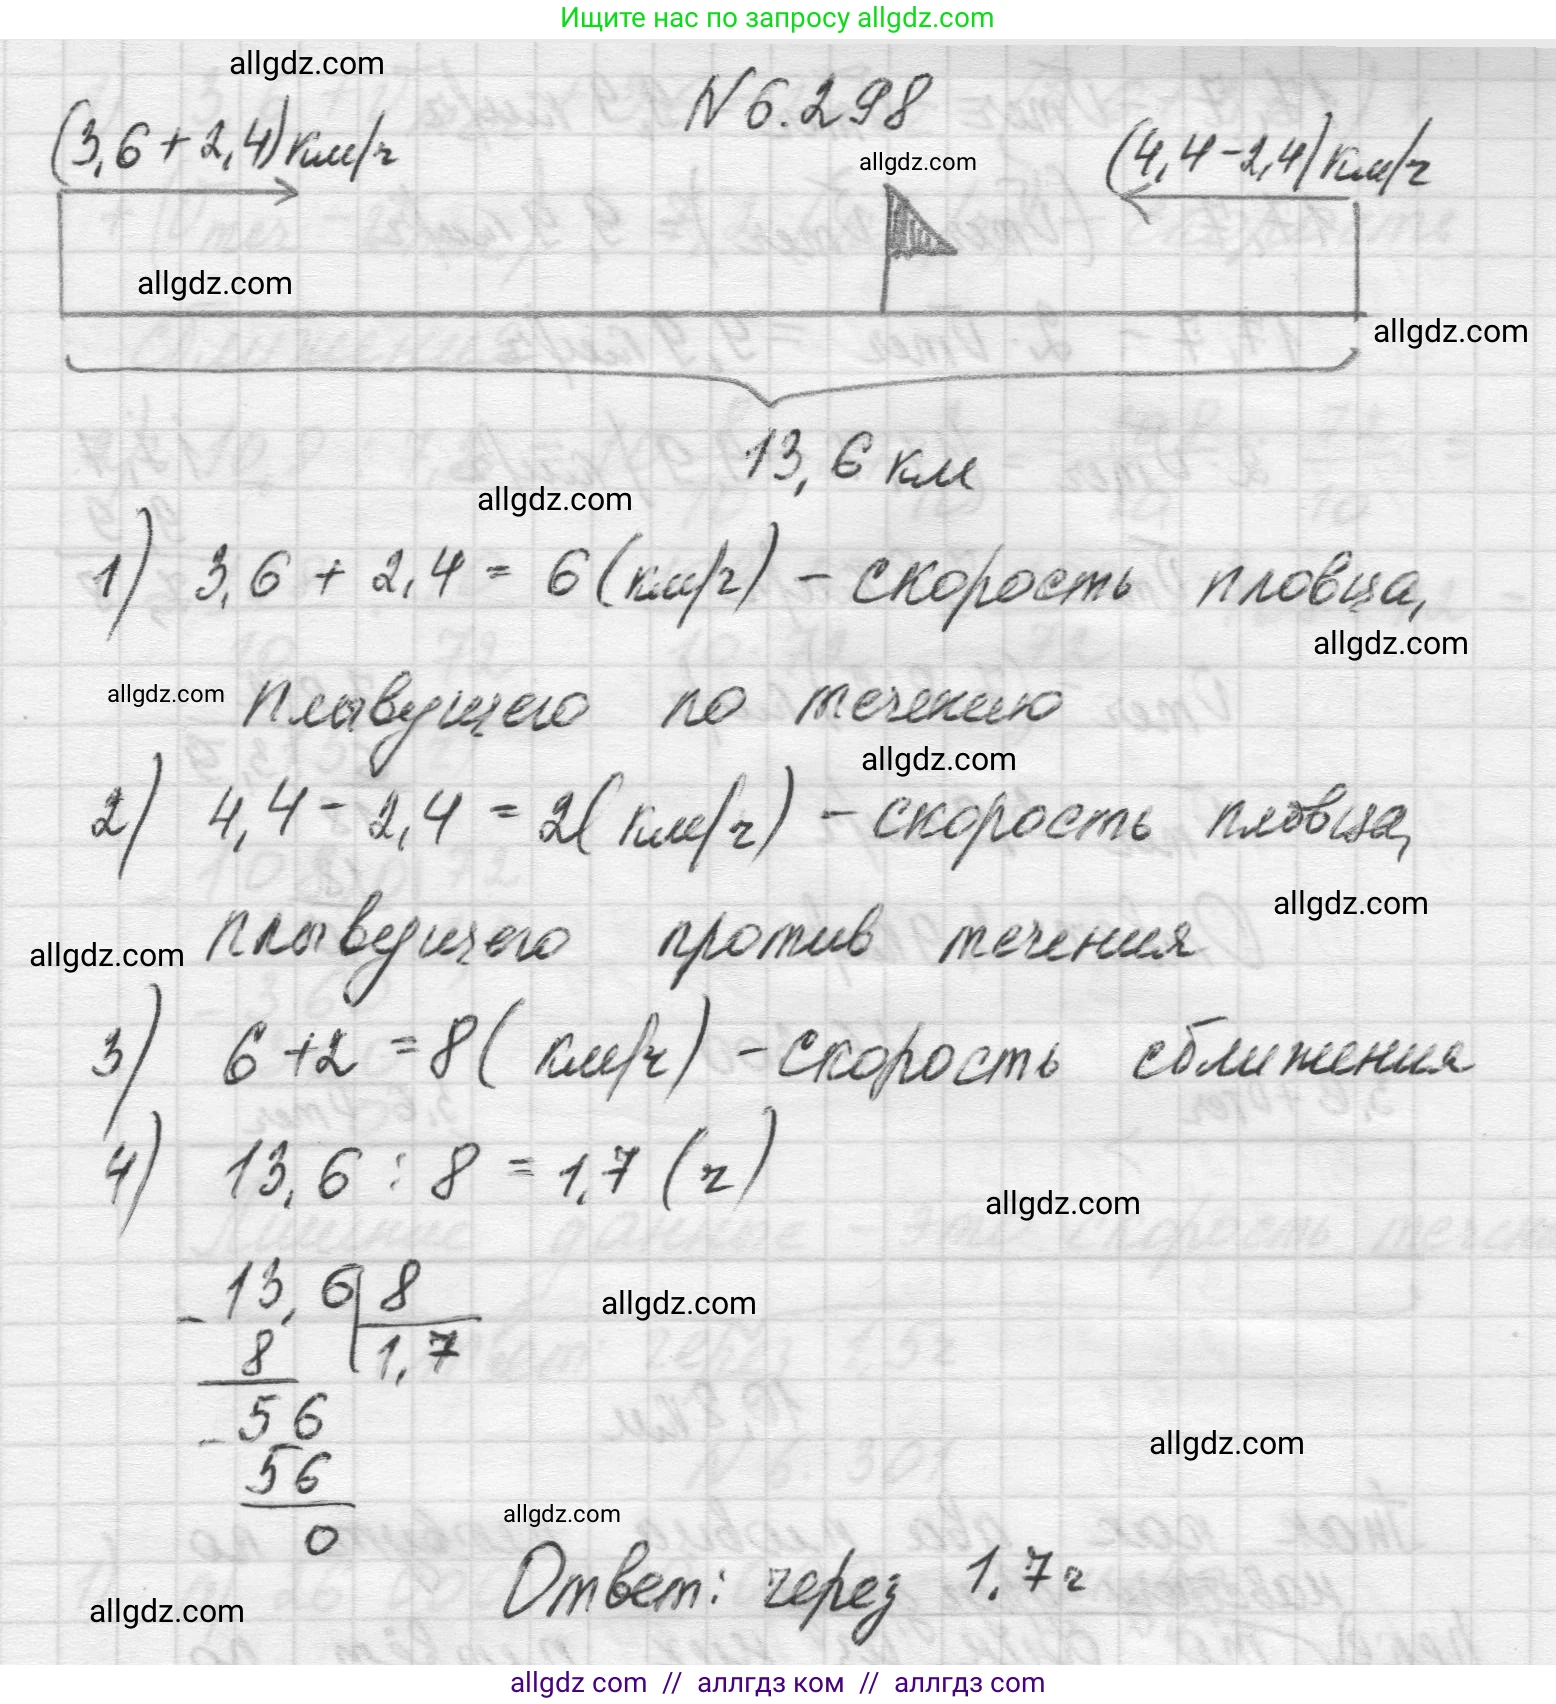 Ищите нас по запросу allgdz.com
allgdz.com
№ 6.298
(3,6 + 2,4) км/ч
allgdz.com
(4,4 - 2,4) км/ч
allgdz.com
allgdz.com
13,6 км
allgdz.com
1) 3,6 + 2,4 = 6 (км/ч) - скорость пловца,
allgdz.com
allgdz.com
плывущего по течению
allgdz.com
2) 4,4 - 2,4 = 2 (км/ч) - скорость пловца,
allgdz.com
плывущего против течения
allgdz.com
3) 6 + 2 = 8 (км/ч) - скорость сближения
4) 13,6 : 8 = 1,7 (ч)
allgdz.com
- 13,6 | 8
allgdz.com
8 1,7
- 56
allgdz.com
56
allgdz.com
0
Ответ: через 1,7 ч
allgdz.com
allgdz.com // аллгдз ком // аллгдз com